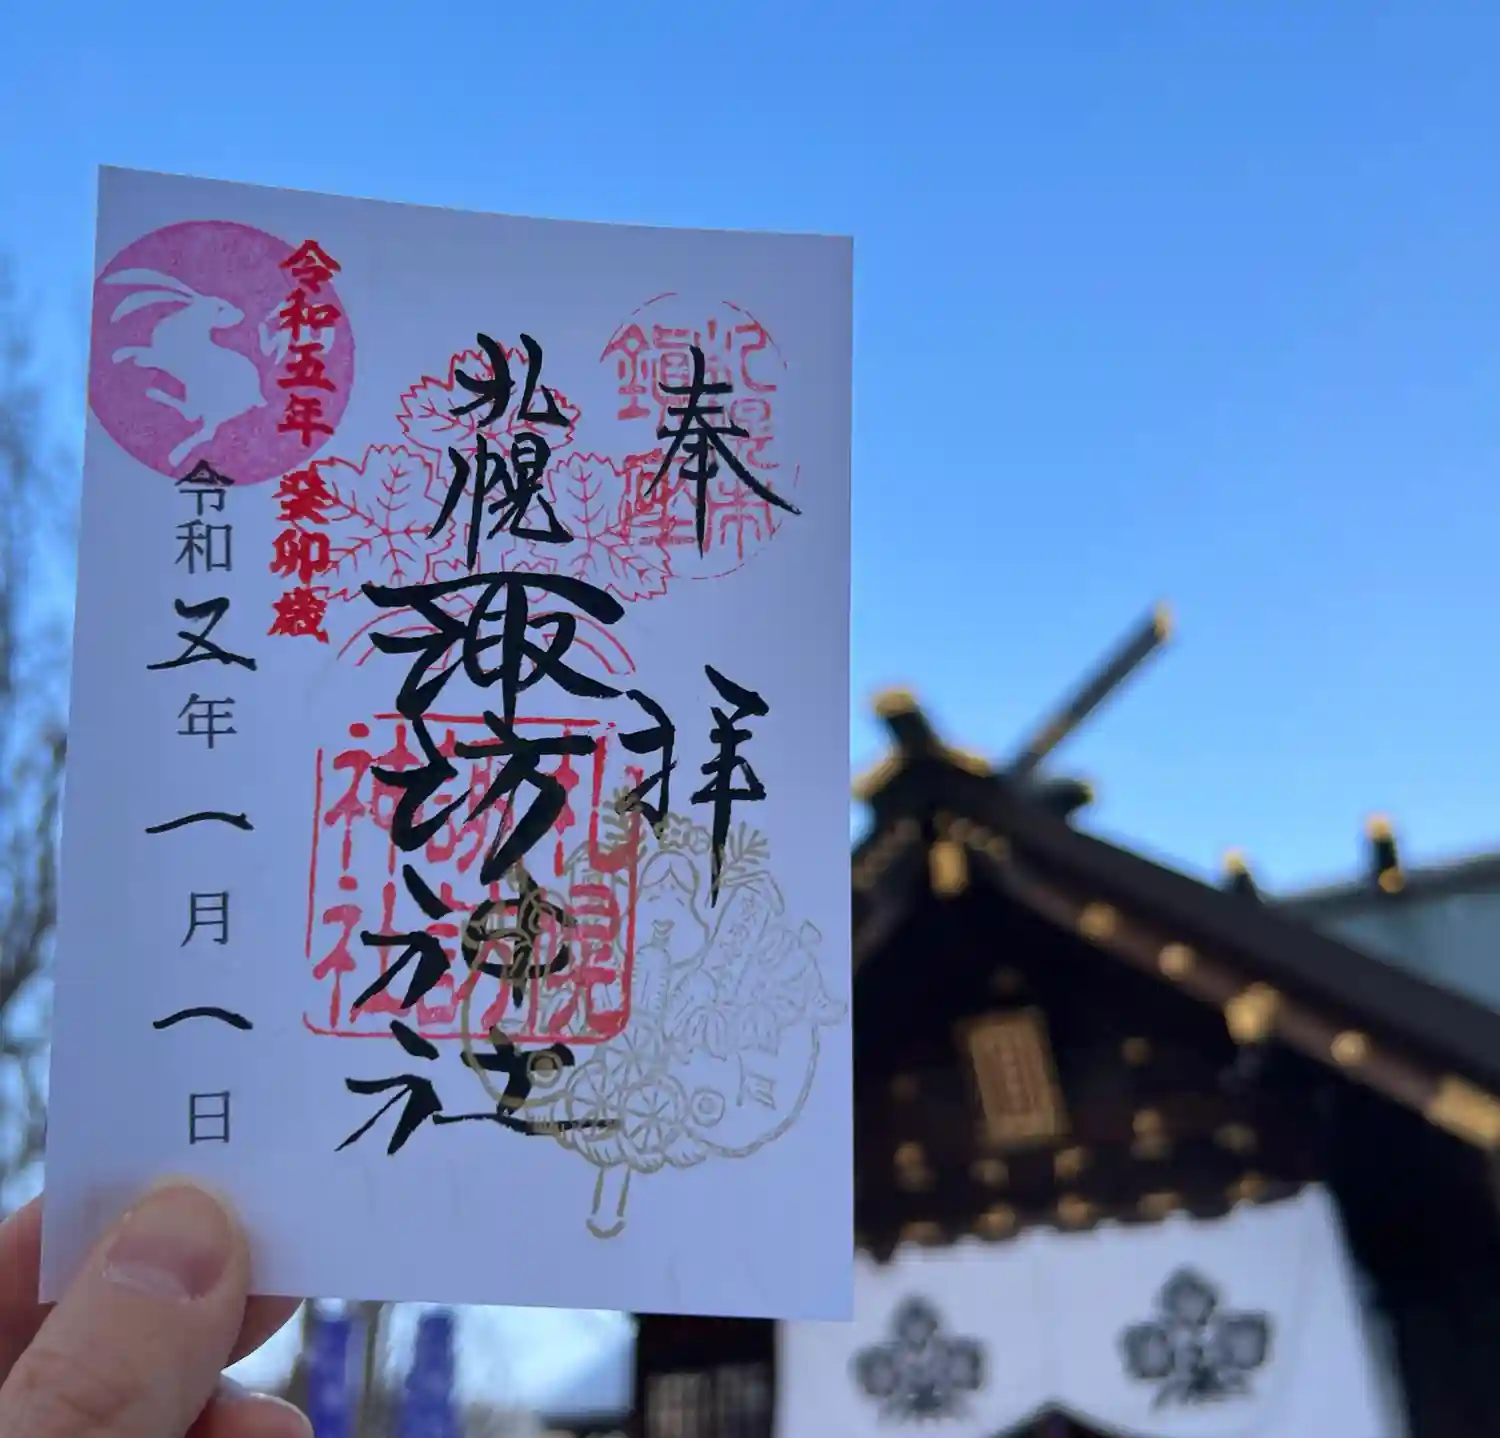 奉拝
札幌諏訪神社
令和五年 癸卯歳
令和五年一月一日
札幌諏訪神社